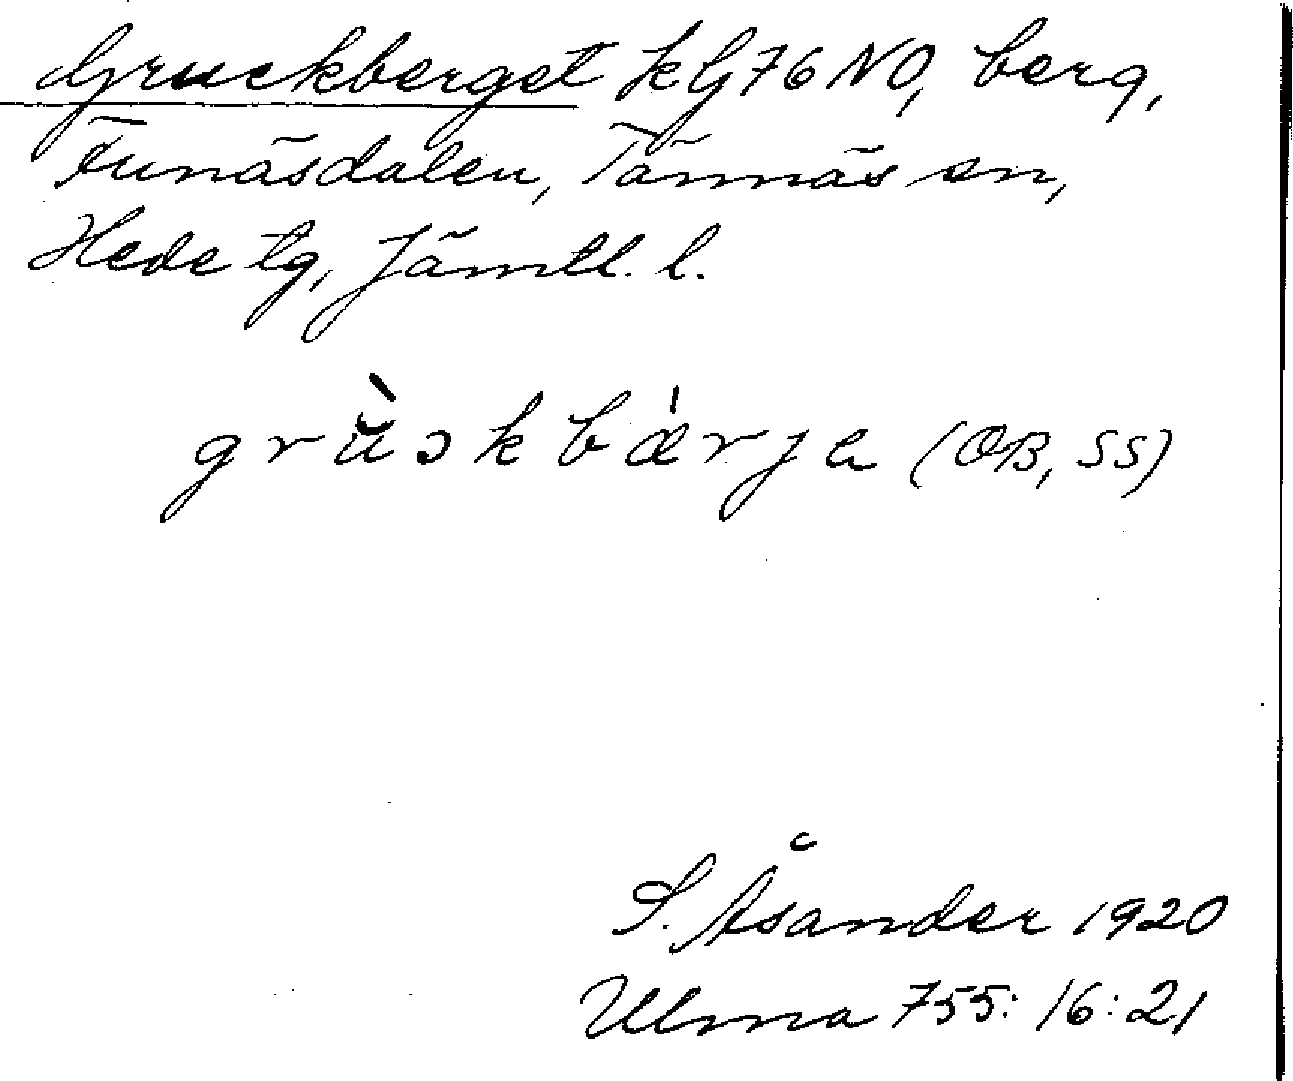 Gruckberget kG76NO, berg,
Funäsdalen, Tännäs sn,
Hede tg, Jämtl. l.
grŭ̀ɔkbæ̍rjа (OB, SS)
S. Åsander 1920
Ulma 755:16:21